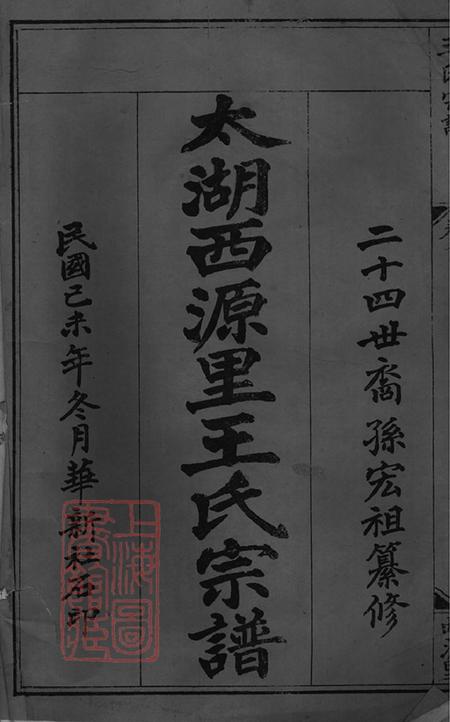 二十四世裔孫宏祖纂修
太湖西源里王氏宗譜
民國己未年冬月華新社石印
上海圖
書館藏